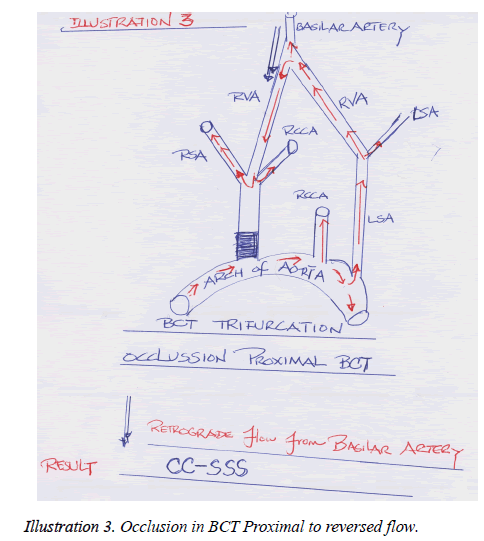 ILLUSTRATION 3
BASILAR ARTERY
RVA
RVA
LSA
RCCA
RSA
RCCA
LSA
ARCH of AORTA
BCT TRIFURCATION
OCCLUSSION PROXIMAL BCT
RETROGRADE flow from BASILAR ARTERY
RESULT
CC-SSS
Illustration 3. Occlusion in BCT Proximal to reversed flow.